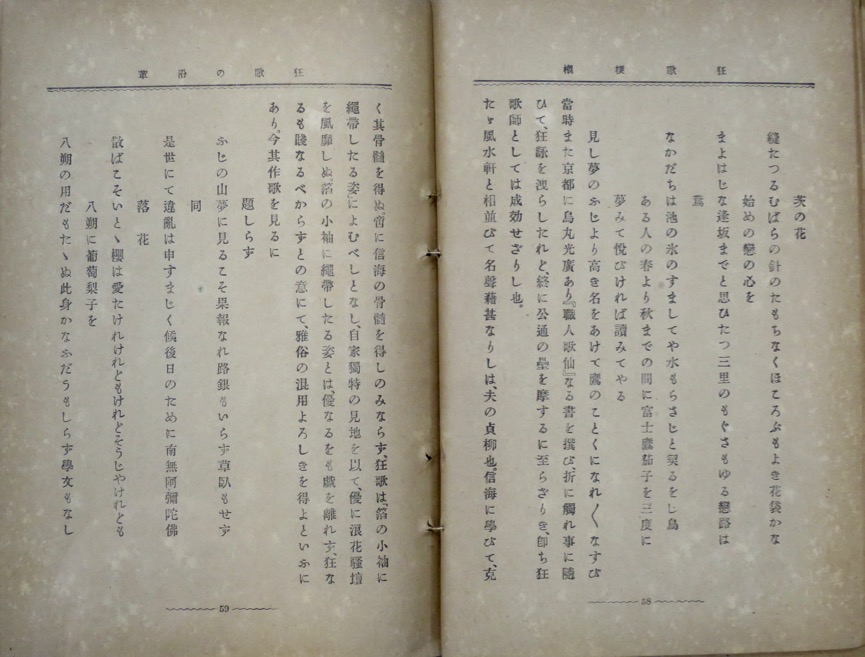 狂歌梗概
茨の花
縫たつるむばらの針のたもちなくほころぶもよき花袋かな
始めの戀の心を
まよはじな逢坂までと思ひたつ三里のもぐさもゆる戀路は
鴛
なかだちは池の氷のすましてや水もらさじと契るをし鳥
ある人の春より秋までの間に富士鷹茄子を三度に
夢みて悅びければ讀みてやる
見し夢のふじより高き名をあけて鷹のことくになれ〳〵なすび
當時また京都に烏丸光廣あり『職人歌仙』なる書を撰び、折に觸れ事に隨
ひて、狂詠を洩らしたれど、終に公通の壘を摩するに至らざりき、卽ち狂
歌師としては成効せざりし也。
たゞ風水軒と相並びて名聲藉甚なりしは、夫の貞柳也。信海に學びて、克
58
狂歌の沿革
く其骨髓を得ぬ。啻に信海の骨髓を得しのみならず、狂歌は、箔の小袖に
繩帶したる姿によむべしとなし、自家獨特の見地を以て、優に浪花騷壇
を風靡しぬ。箔の小袖に繩帶したる姿とは、優なるをも戲を離れず、狂な
るも賤なるべからずとの意にて、雅俗の混用よろしきを得よといふに
あり。今其作歌を見るに
題しらず
ふじの山夢に見るこそ果報なれ路銀もいらず草臥もせず
同
是世にて違亂は申すまじく候後日のために南無阿彌陀佛
落花
散ばこそいとゞ櫻は愛たけれけれどもけれどそうじやけれども
八朔に葡萄梨子を
八朔の用だもたゝぬ此身かなふだうもしらず學文もなし
59